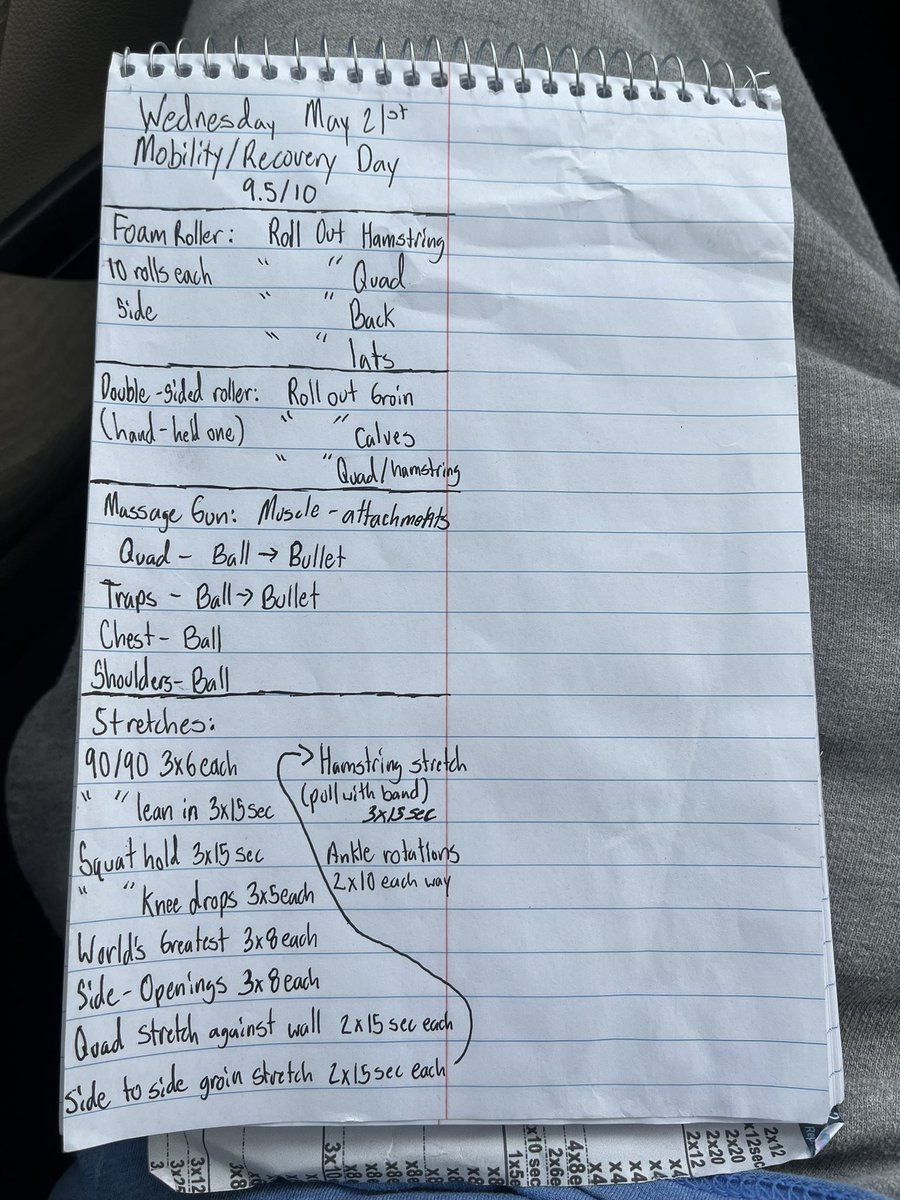 Wednesday May 21st
Mobility/Recovery Day
9.5/10
Foam Roller: Roll Out Hamstring
10 rolls each " " Quad
side " " Back
" " lats
Double-sided roller: Roll out Groin
(hand-held one) " " Calves
" " Quad/hamstring
Massage Gun: Muscle - attachments
Quad - Ball → Bullet
Traps - Ball → Bullet
Chest - Ball
Shoulders - Ball
Stretches:
90/90 3x6 each
" " lean in 3x15 sec
Squat hold 3x15 sec
" " Knee drops 3x5 each
World's Greatest 3x8 each
Side-Openings 3x8 each
Quad stretch against wall 2x15 sec each
Side to side groin stretch 2x15 sec each
Hamstring stretch
(pull with band)
3x15 sec
Ankle rotations
2x10 each way
3x12
2x12
2x20
2x20
2x12